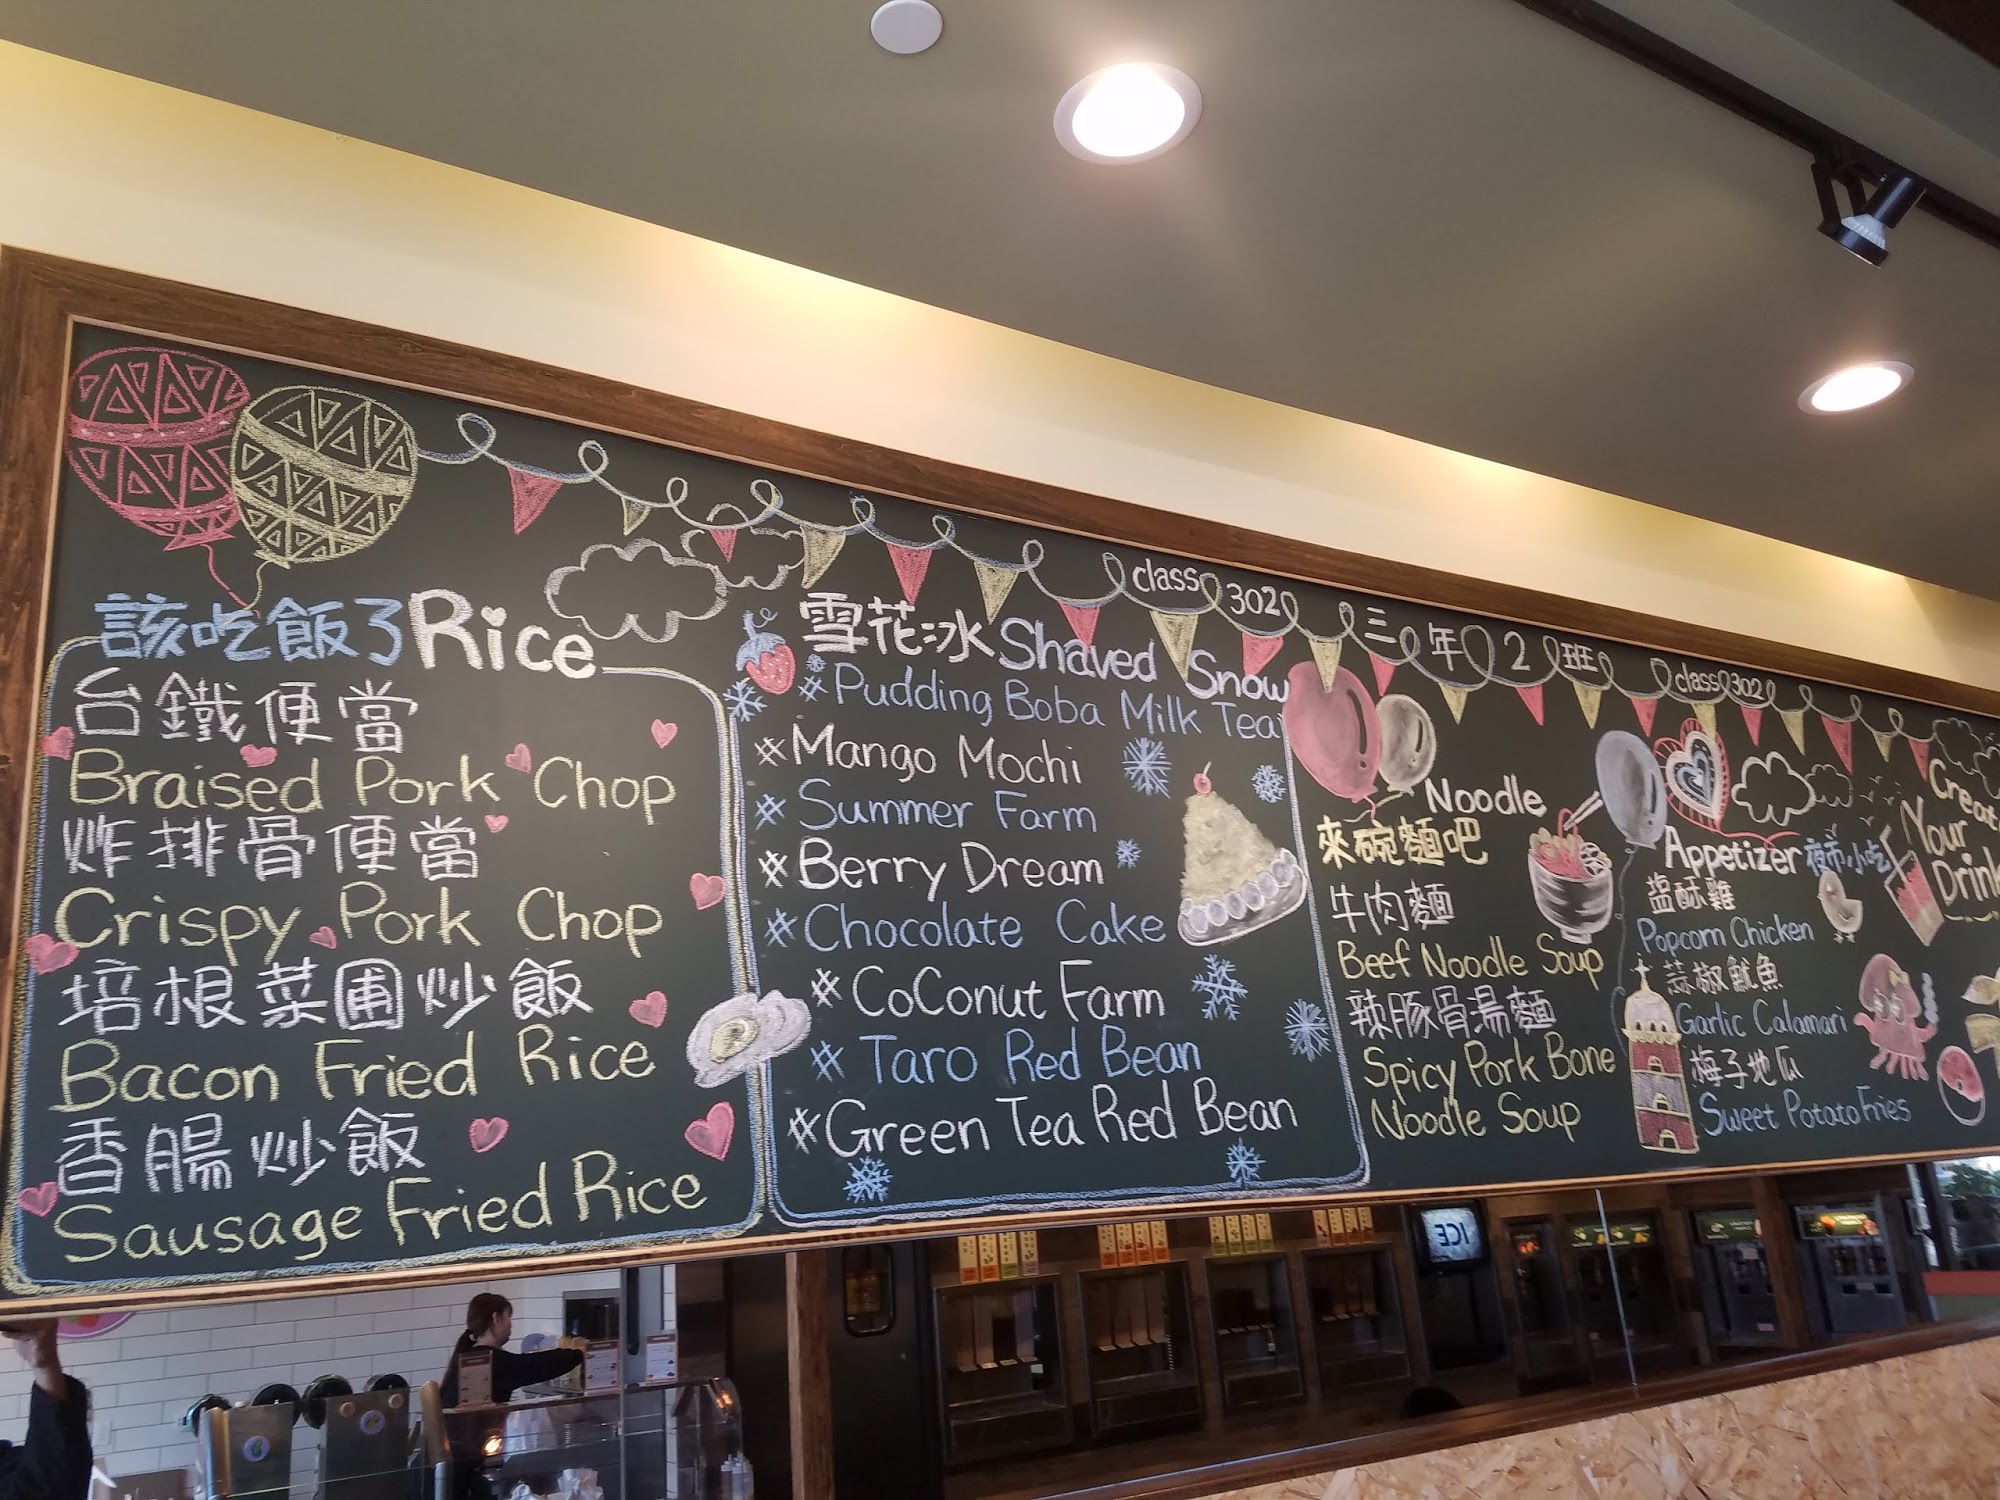 class 302 三年2班 class 302
該吃飯了 Rice
台鐵便當
Braised Pork Chop
炸排骨便當
Crispy Pork Chop
培根菜圃炒飯
Bacon Fried Rice
香腸炒飯
Sausage Fried Rice
雪花冰 Shaved Snow
# Pudding Boba Milk Tea
# Mango Mochi
# Summer Farm
# Berry Dream
# Chocolate Cake
# CoConut Farm
# Taro Red Bean
# Green Tea Red Bean
Noodle
來碗麵吧
牛肉麵
Beef Noodle Soup
辣豚骨湯麵
Spicy Pork Bone
Noodle Soup
Appetizer 夜市小吃
塩酥雞
Popcorn Chicken
蒜椒魷魚
Garlic Calamari
梅子地瓜
Sweet Potato Fries
Your
ICE